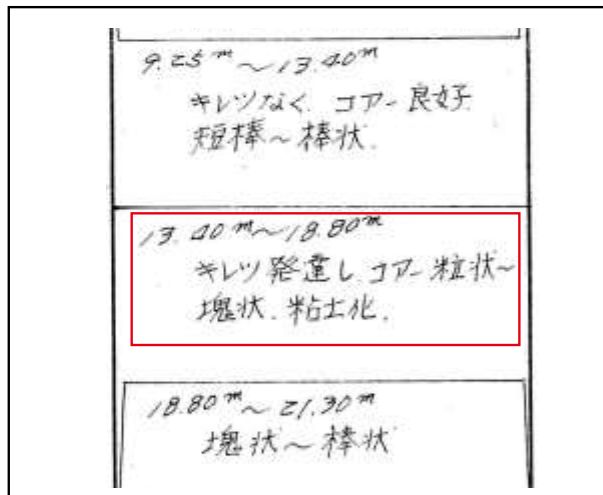 9.25m～13.40m
キレツなく、コアー良好
短棒～棒状.
13.40m～18.80m
キレツ発達し、コアー粒状～
塊状、粘土化.
18.80m～21.30m
塊状～棒状